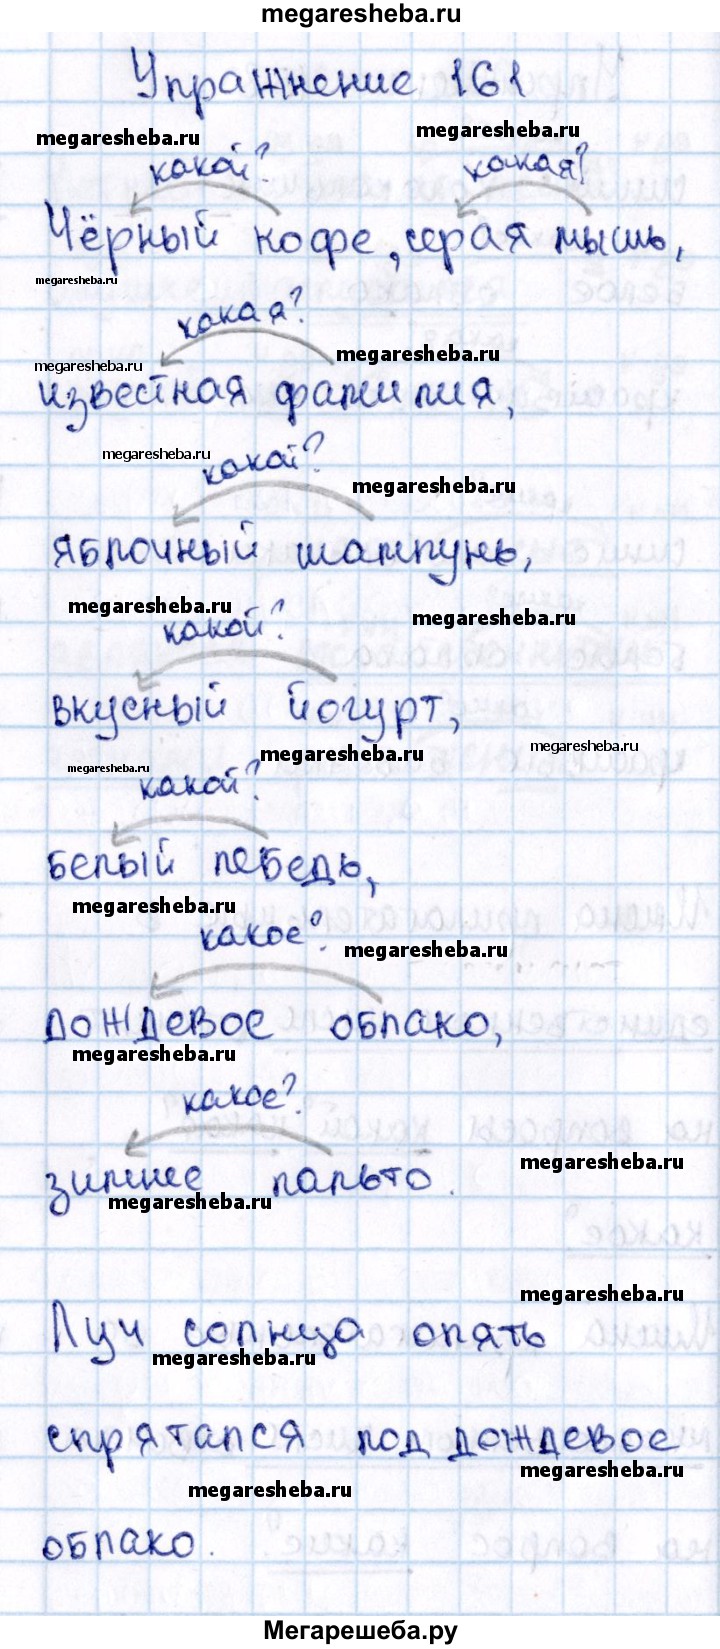 megaresheba.ru
Упражнение 161
megaresheba.ru megaresheba.ru
какой? какая?
Чёрный кофе, серая мышь,
megaresheba.ru
какая?
megaresheba.ru megaresheba.ru
известная фамилия,
megaresheba.ru
какой?
megaresheba.ru
яблочный шампунь,
megaresheba.ru megaresheba.ru
какой?
вкусный йогурт,
megaresheba.ru megaresheba.ru
megaresheba.ru
какой?
белый лебедь,
megaresheba.ru
какое?
megaresheba.ru
дождевое облако,
megaresheba.ru
какое?
megaresheba.ru
зимнее пальто.
megaresheba.ru
megaresheba.ru
Луч солнца опять
megaresheba.ru
спрятался под дождевое
megaresheba.ru
megaresheba.ru
облако.
Мегарешеба.ру